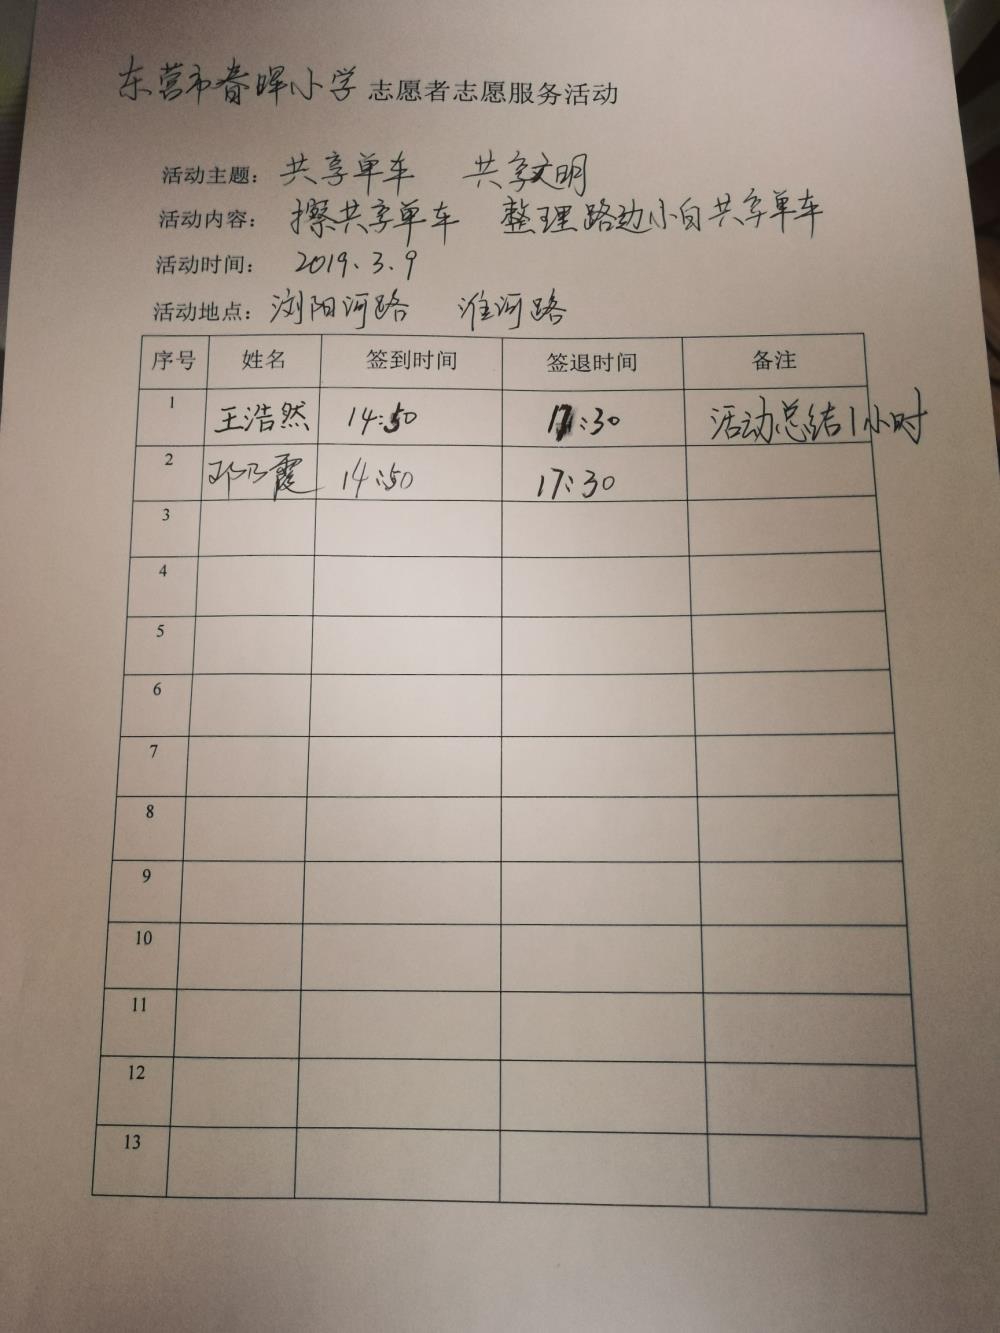 东营市春晖小学志愿者志愿服务活动
活动主题：共享单车 共享文明
活动内容：擦共享单车 整理路边小白共享单车
活动时间：2019.3.9
活动地点：浏阳河路 淮河路
序号 姓名 签到时间 签退时间 备注
1 王浩然 14:50 17:30 活动总结1小时
2 邓乃霞 14:50 17:30
3
4
5
6
7
8
9
10
11
12
13